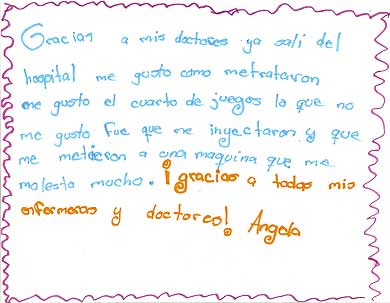 Gracias a mis doctores ya sali del
hospital me gusto como metrataron
me gusto el cuarto de juegos la que no
me gusto fue que me inyectaron y que
me metieron a una maquina que me
molesta mucho. ¡gracias a todas mis
enfermeras y doctores! Angela